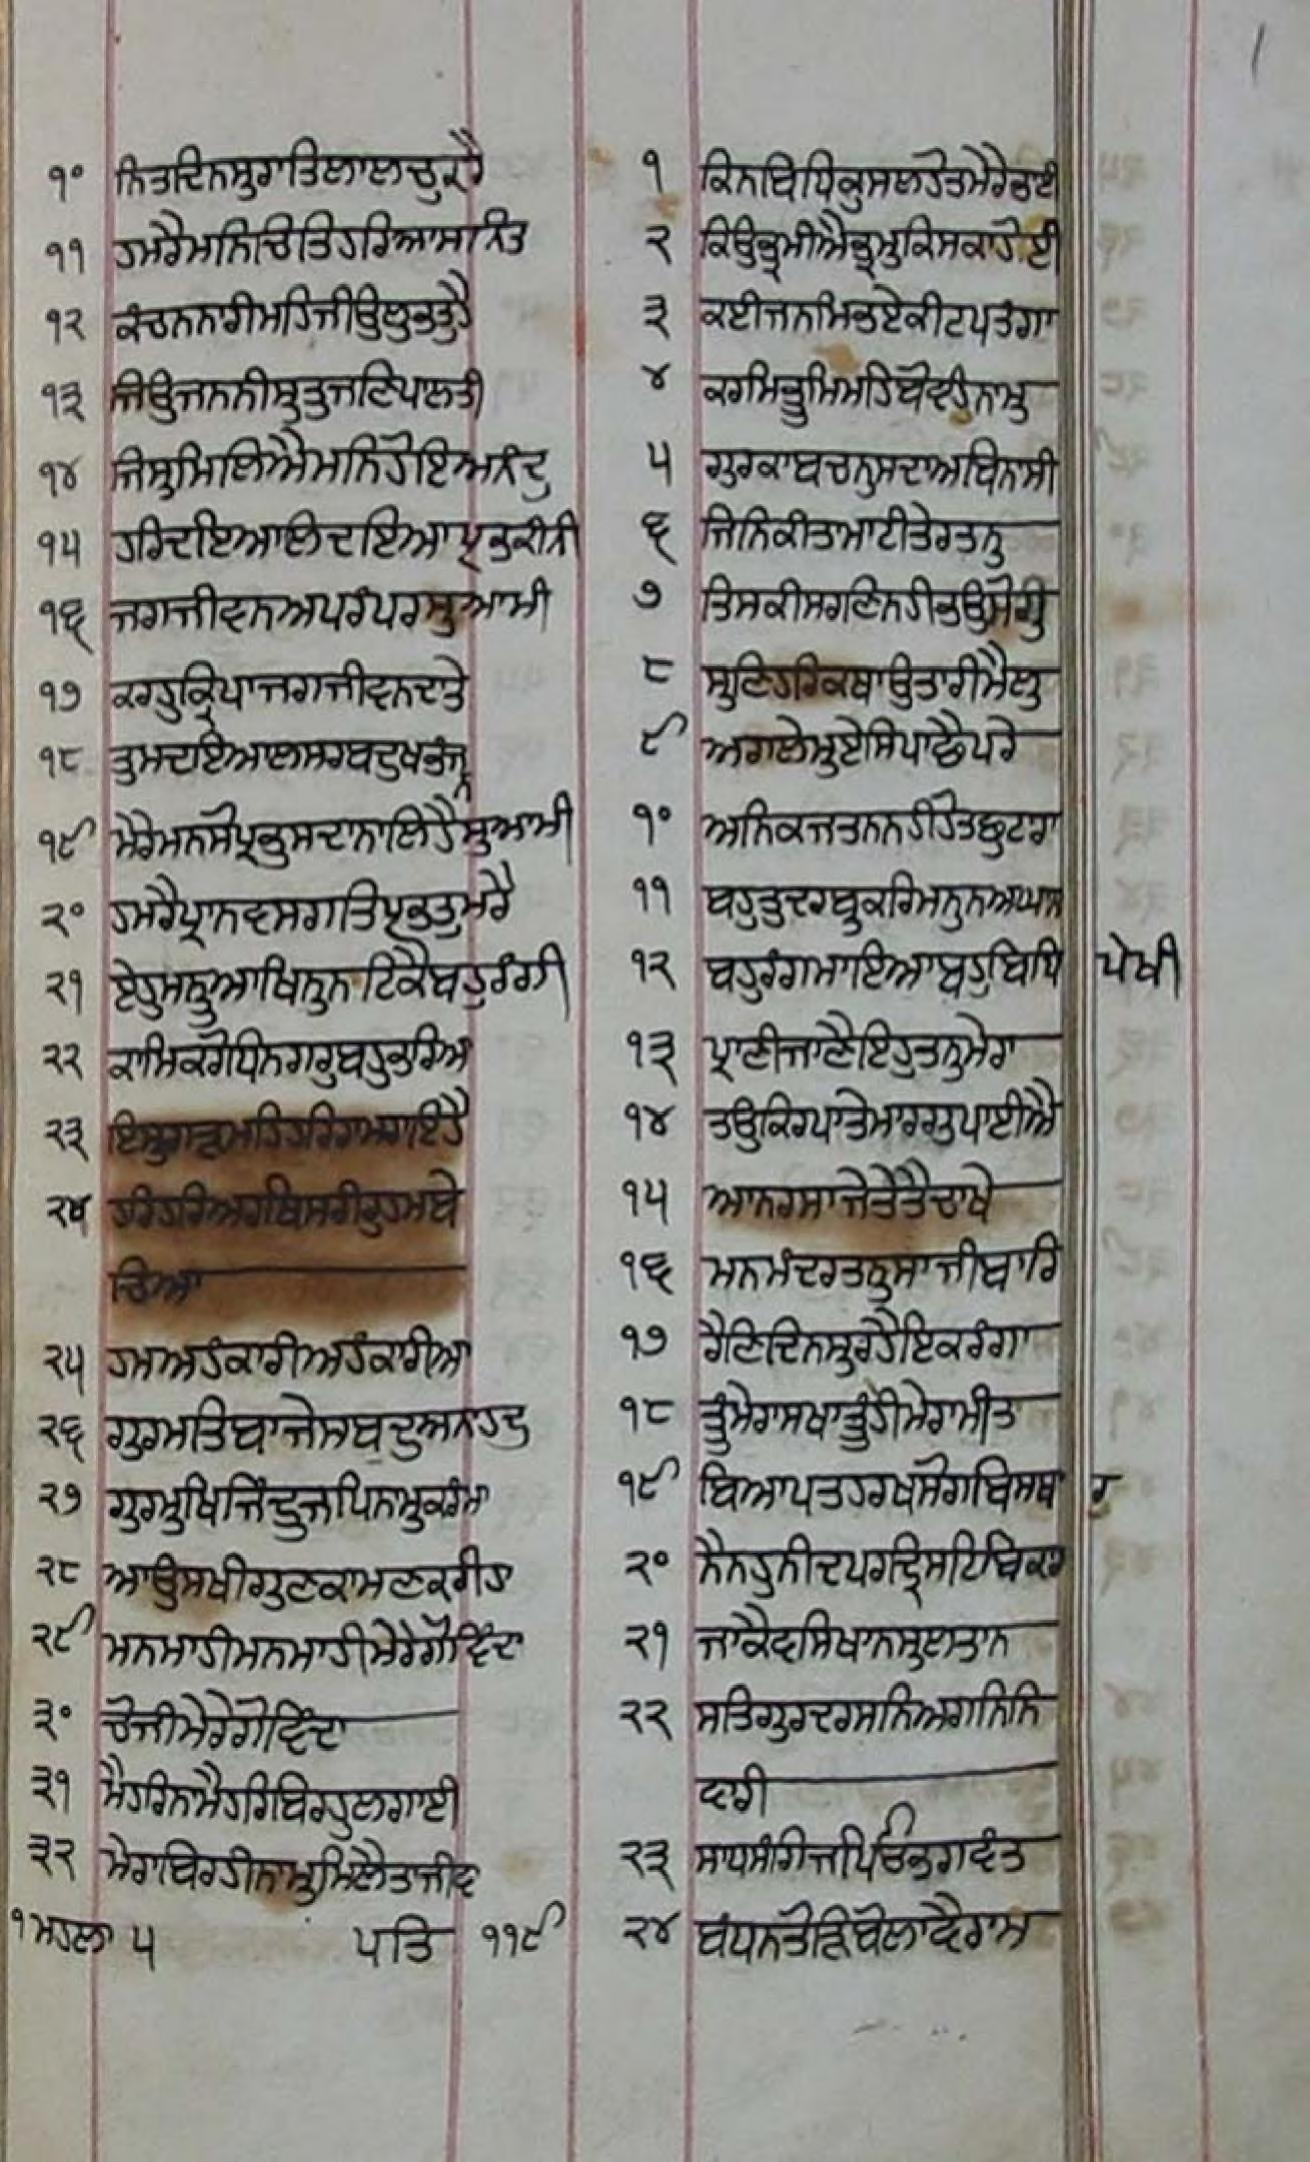 ੧੦ ਨਿਤਦਿਨਸੁਰਾਤਿਲਾਲਚੁਕਰੈ
੧੧ ਹਮਰੈਮਨਿਚਿਤਿਹਰਿਆਸਨਿਤ
੧੨ ਕੰਚਨਨਾਰੀਮਹਿਜੀਉਲੁਭਤੁਹੈ
੧੩ ਜਿਉਜਨਨੀਸੁਤੁਜਣਿਪਾਲਤੀ
੧੪ ਜਿਸੁਮਿਲਿਐਮਨਿਹੋਇਅਨੰਦੁ
੧੫ ਹਰਿਦਇਆਲਿਦਇਆਪ੍ਰਭਕੀਨੀ
੧੬ ਜਗਜੀਵਨਅਪਰੰਪਰਸੁਆਮੀ
੧੭ ਕਰਹੁਕ੍ਰਿਪਾਜਗਜੀਵਨਦਾਤੇ
੧੮ ਤੁਮਦਇਆਲਸਰਬਦੁਖਭੰਜਨ
੧੯ ਮੇਰੇਮਨਸੋਪ੍ਰਭੁਸਦਾਨਾਲਿਹੈਸੁਆਮੀ
੨੦ ਹਮਰੈਪ੍ਰਾਨਵਸਗਤਿਪ੍ਰਭਤੁਮਰੈ
੨੧ ਏਹੁਮਨੂਆਖਿਨੁਨਟਿਕੈਬਹੁਰੰਗੀ
੨੨ ਕਾਮਿਕਰੋਧਿਨਗਰੁਬਹੁਭਰਿਆ
੨੩ ਇਸੁਗੜਮਹਿਹਰਿਰਾਮਰਾਇਹੈ
੨੪ ਹਰਿਹਰਿਅਰਥਿਸਰੀਰੁਹਮਬੇ
ਚਿਆ
੨੫ ਹਮਅਹੰਕਾਰੀਅਹੰਕਾਰੀਆ
੨੬ ਗੁਰਮਤਿਬਾਜੇਸਬਦੁਅਨਾਹਦੁ
੨੭ ਗੁਰਮੁਖਿਜਿੰਦੂਜਪਿਨਾਮੁਕਰੰਮਾ
੨੮ ਆਉਸਖੀਗੁਣਕਾਮਣਕਰੀਹਾ
੨੯ ਮਨਮਾਹੀਮਨਮਾਹੀਮੇਰੇਗੋਵਿੰਦਾ
੩੦ ਚੋਜੀਮੇਰੇਗੋਵਿੰਦਾ
੩੧ ਮੈਹਰਿਨਾਮੈਹਰਿਬਿਰਹੁਲਗਾਈ
੩੨ ਮੇਰਾਬਿਰਹੀਨਾਮੁਮਿਲੈਤਾਜੀਵ
੧ ਮਹਲਾ ੫ ਪਤਿ ੧੧੯
੧ ਕਿਨਬਿਧਿਕੁਸਲਹੋਤਮੇਰੇਭਾਈ
੨ ਕਿਉਭ੍ਰਮੀਐਭ੍ਰਮੁਕਿਸਕਾਹੋਈ
੩ ਕਈਜਨਮਿਭਏਕੀਟਪਤੰਗਾ
੪ ਕਰਮਿਭੂਮਿਮਹਿਬੋਵਹੁਨਾਮੁ
੫ ਗੁਰਕਾਬਚਨੁਸਦਾਅਬਿਨਾਸੀ
੬ ਜਿਨਿਕੀਤਾਮਾਟੀਤੇਰਤਨੁ
੭ ਤਿਸਕੀਸਰਣਿਨਹੀਭਉਸੋਗੁ
੮ ਸੁਣਿਹਰਿਕਥਾਉਤਾਰੀਮੈਲੁ
੯ ਅਗਲੇਮੁਏਸਿਪਾਛੈਪਰੇ
੧੦ ਅਨਿਕਜਤਨਨਹੀਹੋਤਛੁਟਾਰਾ
੧੧ ਬਹੁਤੁਦਰਬੁਕਰਿਮਨੁਨਅਘਾਨ
੧੨ ਬਹੁਰੰਗਮਾਇਆਬਹੁਬਿਧਿ ਪੇਖੀ
੧੩ ਪ੍ਰਾਣੀਜਾਣੈਇਹੁਤਨੁਮੇਰਾ
੧੪ ਤਉਕਿਰਪਾਤੇਮਾਰਗੁਪਾਈਐ
੧੫ ਆਨਰਸਾਜੇਤੇਤੈਚਾਖੇ
੧੬ ਮਨਮੰਦਰਤਨੁਸਾਜੀਬਾਰਿ
੧੭ ਰੈਣਿਦਿਨਸੁਰਹੈਇਕਰੰਗਾ
੧੮ ਤੂੰਮੇਰਾਸਖਾਤੂੰਹੀਮੇਰਾਮੀਤ
੧੯ ਬਿਆਪਤਹਰਖਸੋਗਬਿਸਥਾ ਰ
੨੦ ਨੈਨਹੁਨੀਦਪਰਦ੍ਰਿਸਟਿਬਿਕਾਰ
੨੧ ਜਾਕੈਵਸਿਖਾਨਸੁਲਤਾਨ
੨੨ ਸਤਿਗੁਰਦਰਸਨਿਅਗਨਿਨਿ
ਵਾਰੀ
੨੩ ਸਾਧਸੰਗਿਜਪਿਓਭਗਵੰਤ
੨੪ ਬੰਧਨਤੋੜਿਬੋਲਾਵੈਰਾਮ